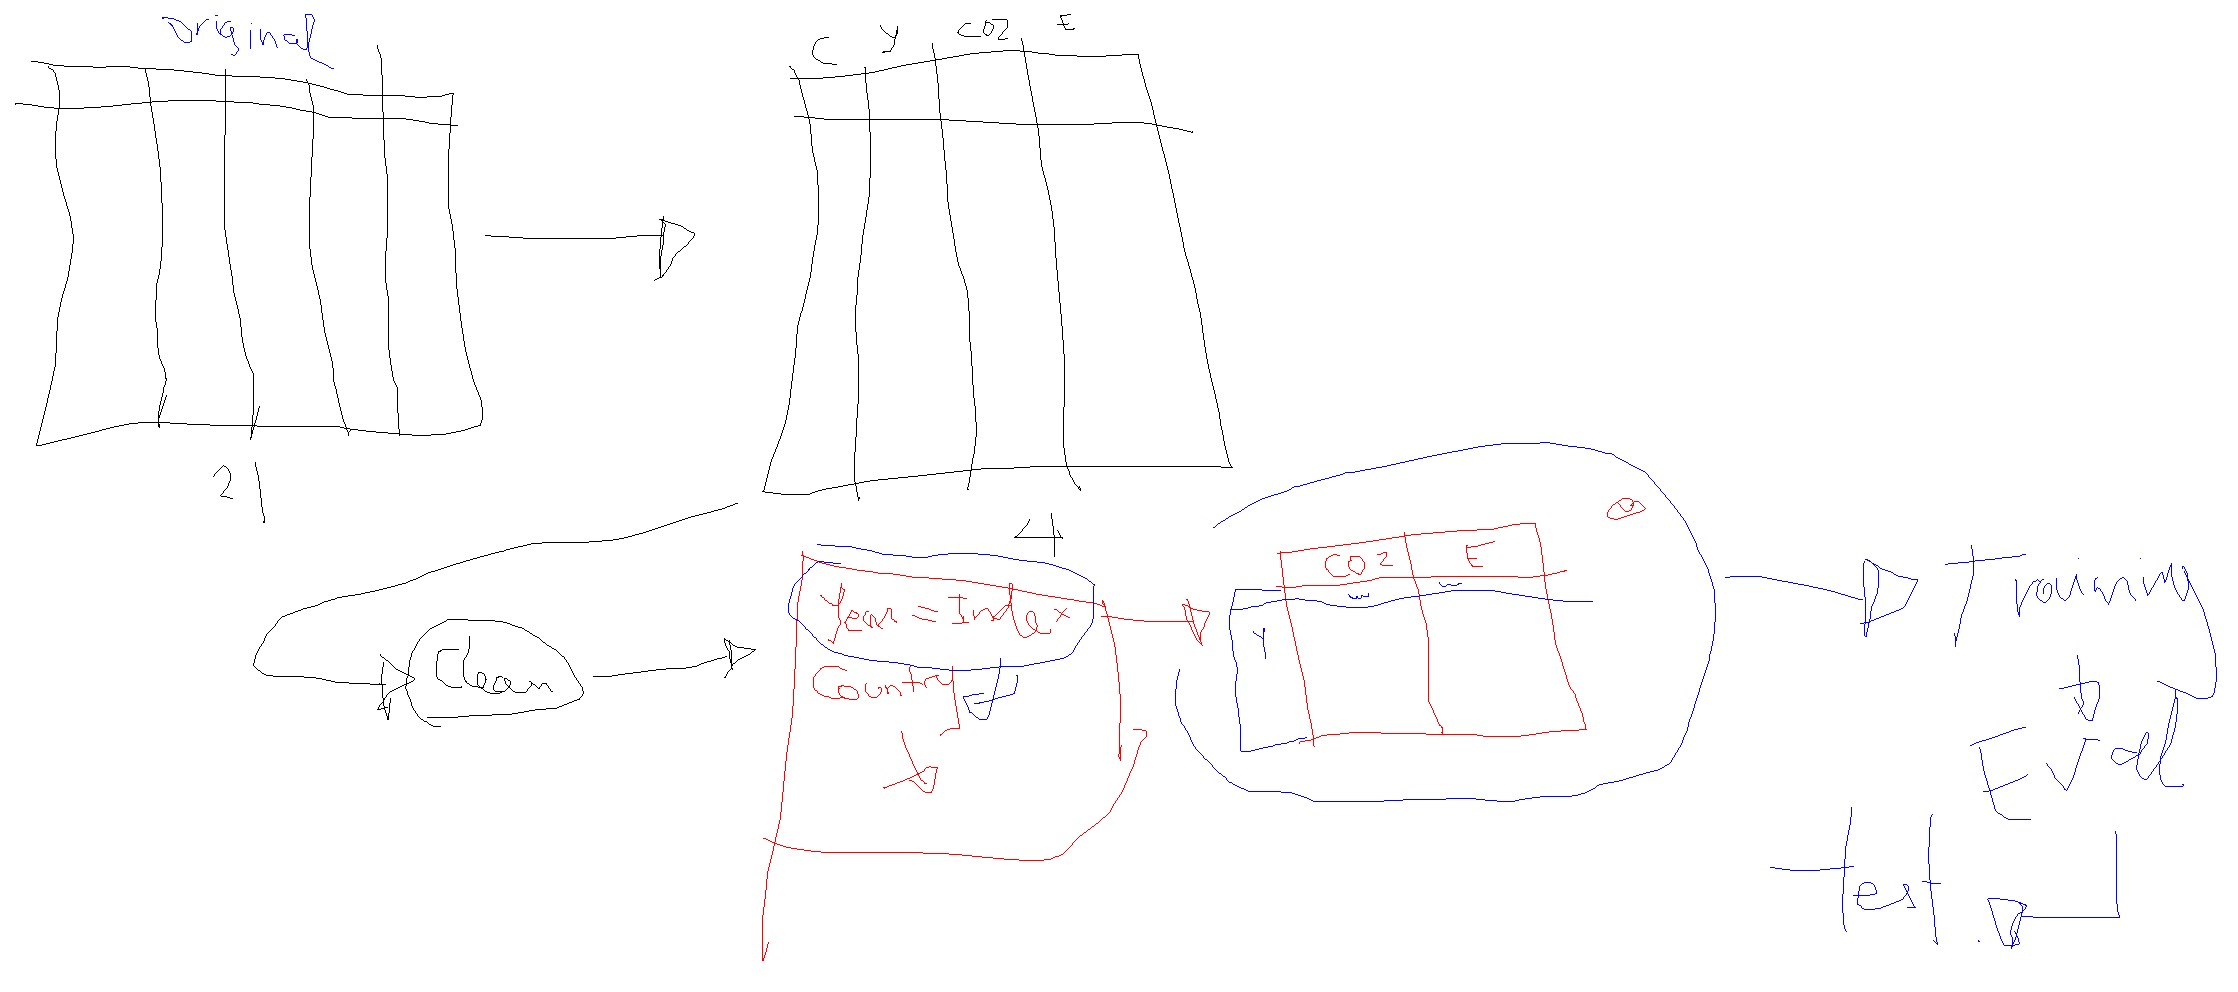 original
C Y CO2 E
21
4
Clean
Year = Index
Country
CO2 E
Y
Training
Eval
test